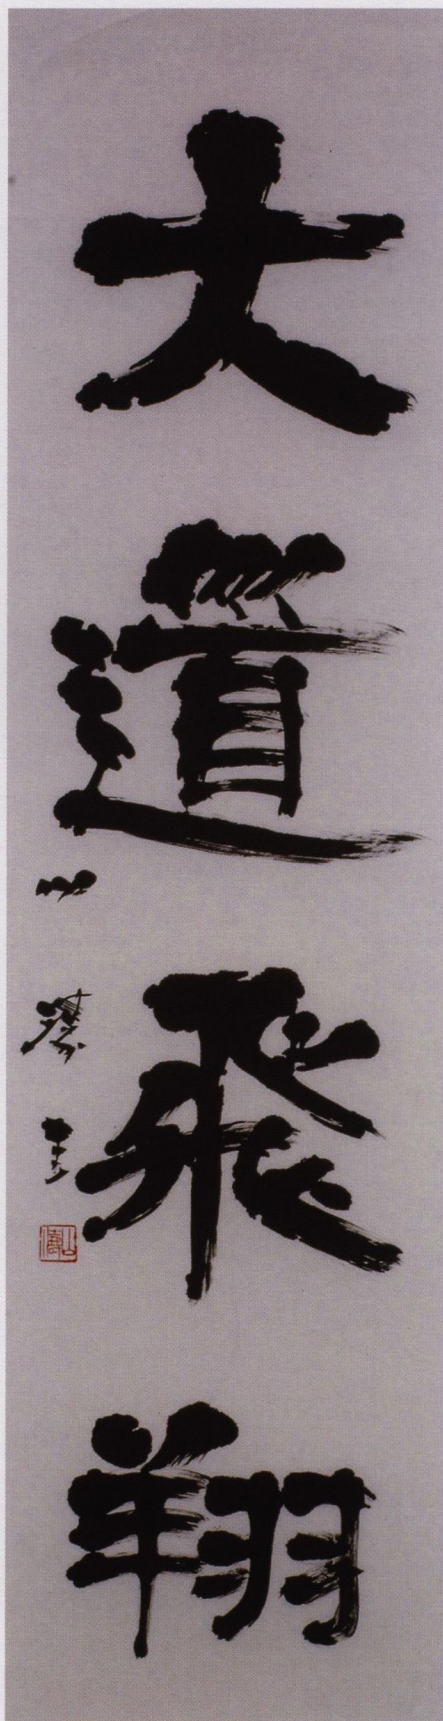 大道飛翔